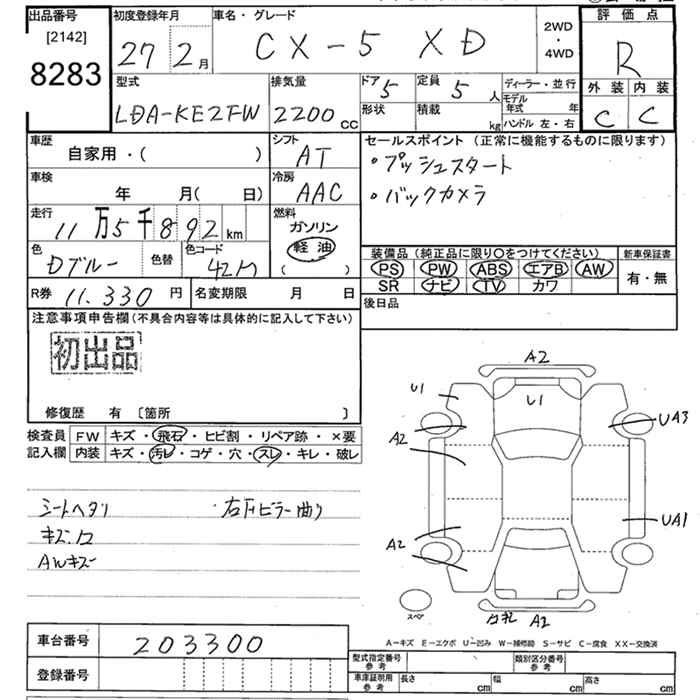 出品番号
[2142]
8283
初度登録年月
27 2月
車名・グレード
CX-5 XD
2WD
・
4WD
評価点
R
外装 内装
C C
型式
LDA-KE2FW
排気量
2200cc
ドア
5
定員
5人
形状
積載
kg
ディーラー・並行
モデル年式 年
ハンドル 左・右
車歴
自家用・( )
シフト
AT
セールスポイント(正常に機能するものに限ります)
・プッシュスタート
・バックカメラ
車検
年 月( 日)
冷房
AAC
走行
11万5千892km
燃料
ガソリン
軽油
( )
色
Dブルー
色替
色コード
42M
装備品(純正品に限り〇をつけてください)
PS PW ABS エアB AW
SR ナビ TV カワ
新車保証書
有・無
R券 11.330円
名変期限 月 日
後日品
注意事項申告欄(不具合内容等は具体的に記入して下さい)
初出品
修復歴 有 〔箇所 〕
検査員記入欄
FW キズ・飛石・ヒビ割・リペア跡・×要
内装 キズ・汚レ・コゲ・穴・スレ・キレ・破レ
シートヘタリ
AWキズ
A2
U1
U1
UA3
A2
UA1
A2
A2
スペア
A-キズ E-エクボ U-凹み W-補修跡 S-サビ C-腐食 XX-交換済
車台番号 203300
登録番号
型式指定番号 参考
類別区分番号 参考
車庫証明用 参考
長さ cm
幅 cm
高さ cm